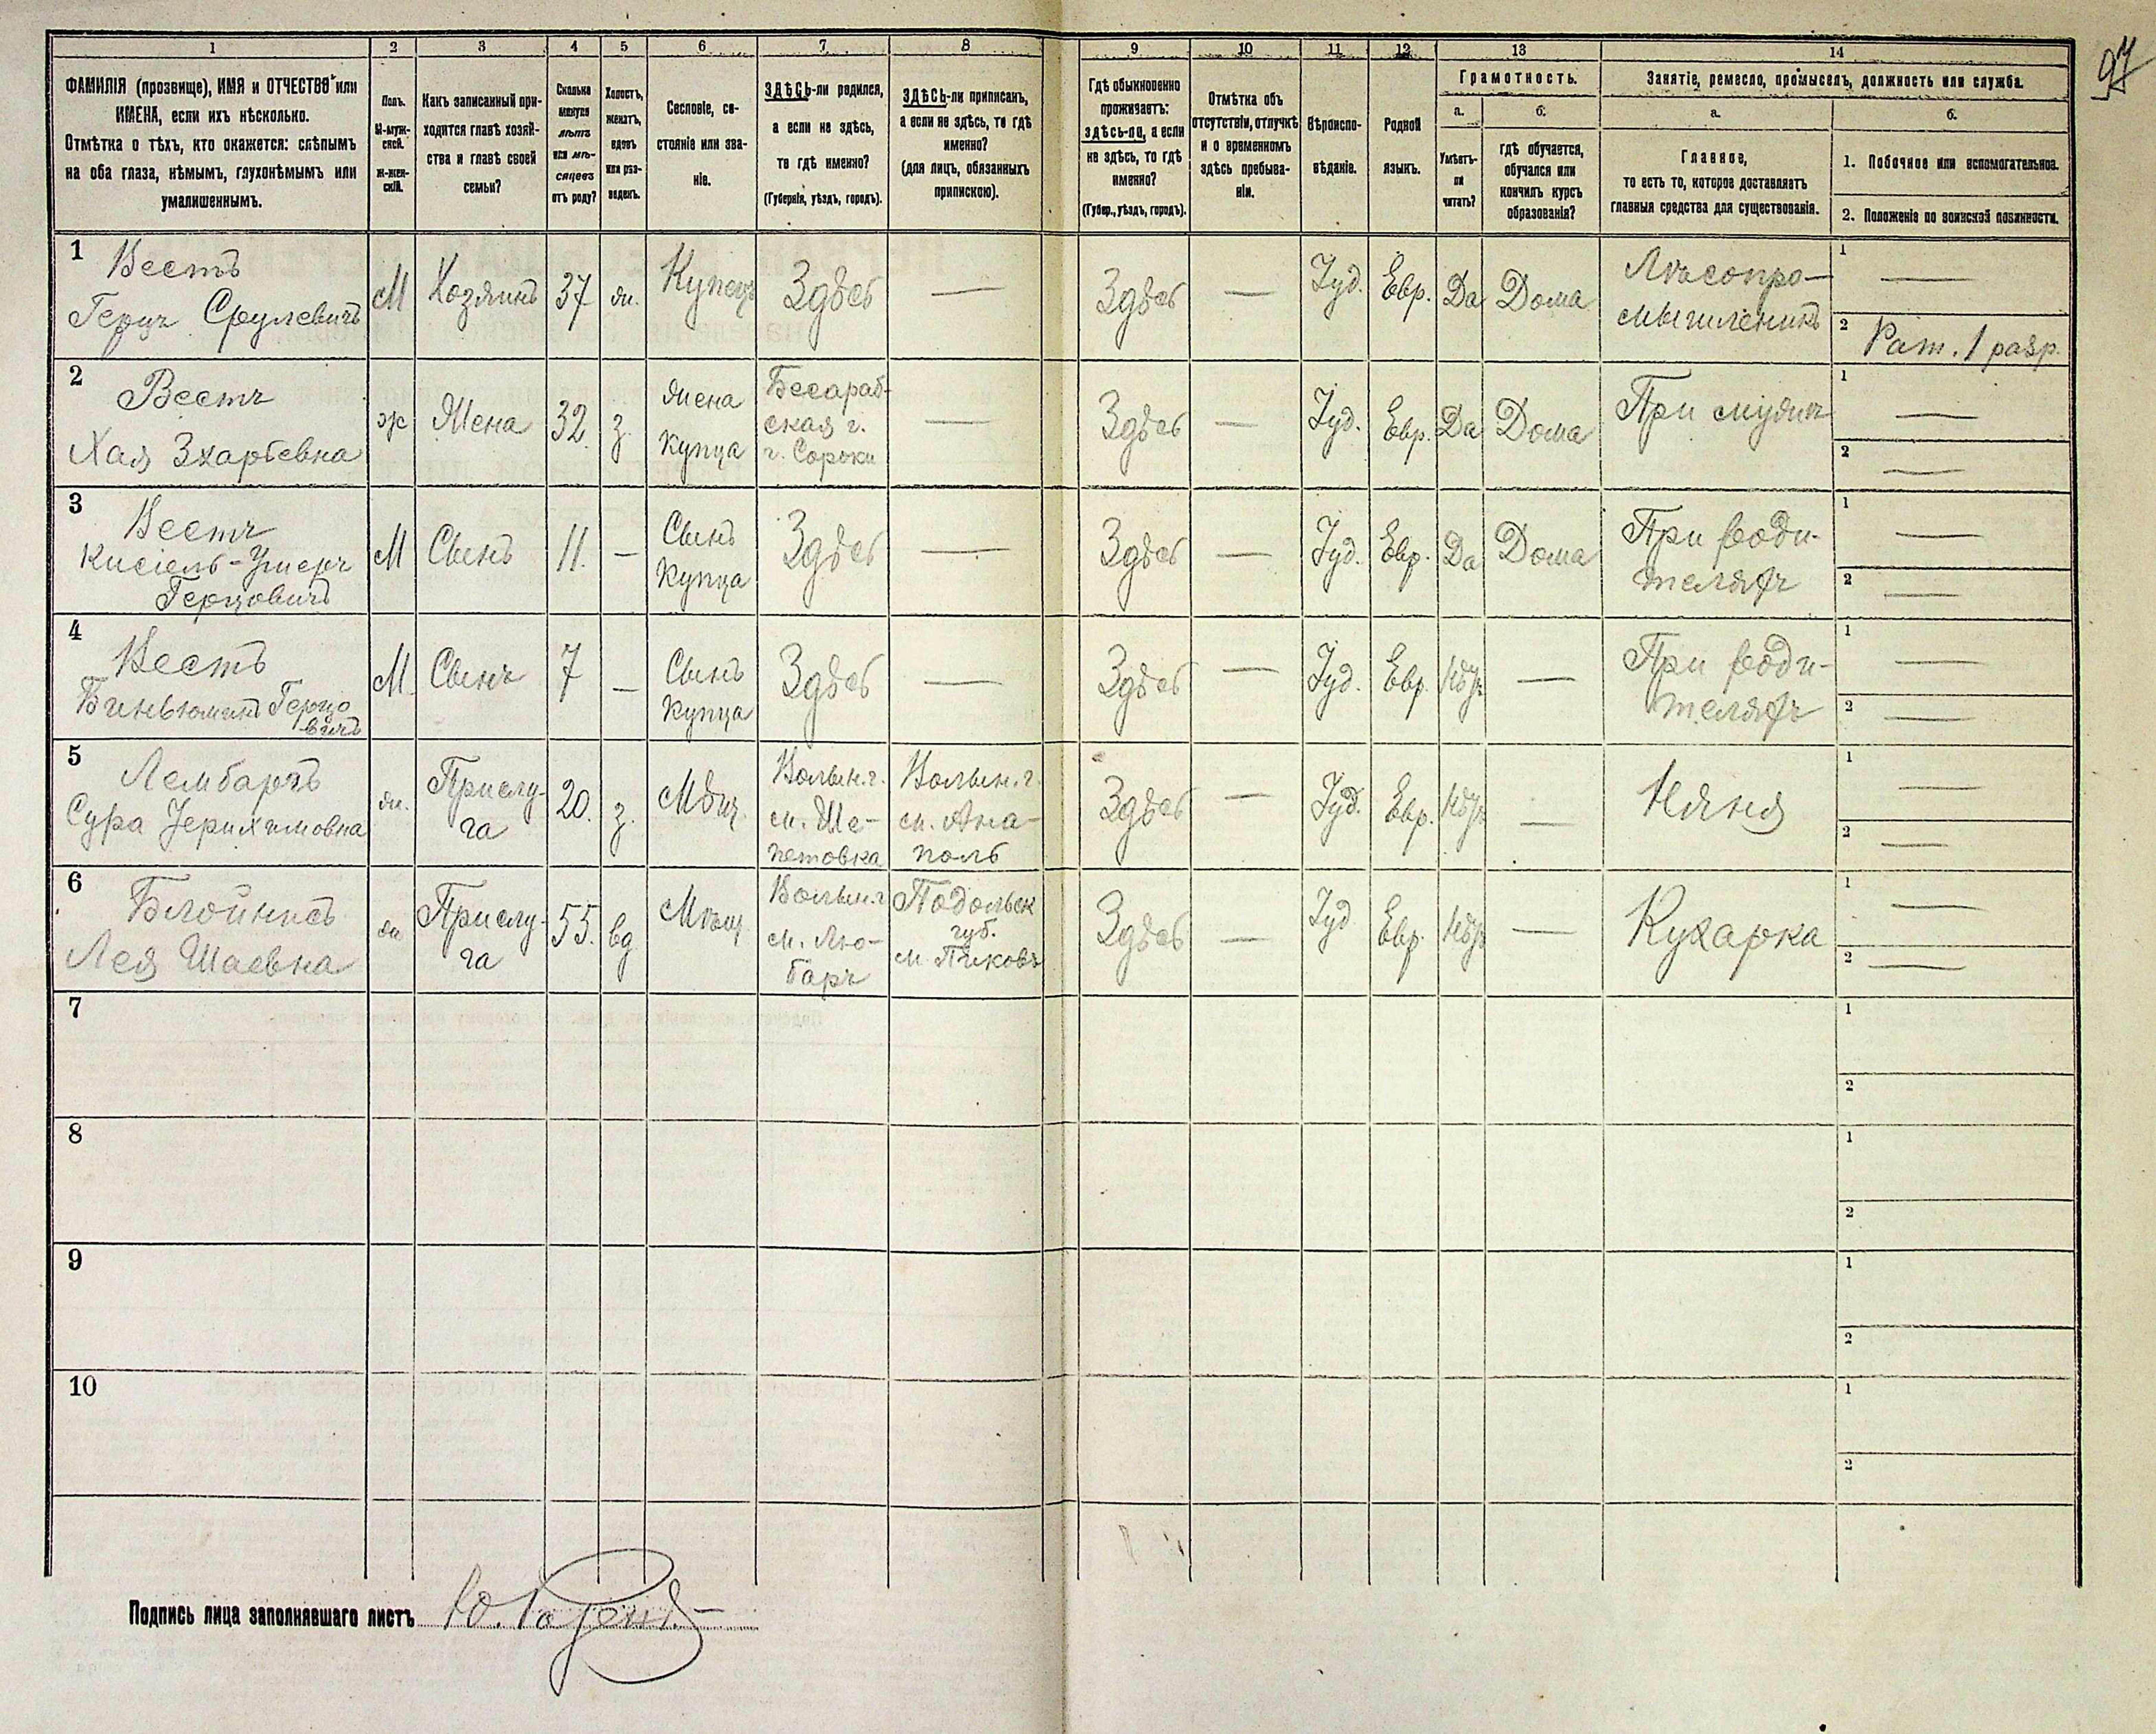 97
1 2 3 4 5 6 7 8 9 10 11 12 13 14
ФАМИЛІЯ (прозвище), ИМЯ и ОТЧЕСТВО или
ИМЕНА, если ихъ нѣсколько.
Отмѣтка о тѣхъ, кто окажется: слѣпымъ
на оба глаза, нѣмымъ, глухонѣмымъ или
умалишеннымъ.
Полъ.
М-муж-
ской.
Ж-жен-
скій.
Какъ записанный при-
ходится главѣ хозяй-
ства и главѣ своей
семьи?
Сколько
минуло
лѣтъ
или мѣ-
сяцевъ
отъ роду?
Холостъ,
женатъ,
вдовъ
или раз-
веденъ.
Сословіе, со-
стояніе или зва-
ніе.
ЗДѢСЬ-ли родился,
а если не здѣсь,
то гдѣ именно?
(Губернія, уѣздъ, городъ).
ЗДѢСЬ-ли приписанъ,
а если не здѣсь, то гдѣ
именно?
(для лицъ, обязанныхъ
припискою).
Гдѣ обыкновенно
проживаетъ:
здѣсь-ли, а если
не здѣсь, то гдѣ
именно?
(Губер., уѣздъ, городъ).
Отмѣтка объ
отсутствіи, отлучкѣ
и о временномъ
здѣсь пребыва-
ніи.
Вѣроиспо-
вѣданіе.
Родной
языкъ.
Грамотность.
а.
Умѣетъ-
ли
читать?
б.
гдѣ обучается,
обучался или
кончилъ курсъ
образованія?
Занятіе, ремесло, промыселъ, должность или служба.
а.
Главное,
то есть то, которое доставляетъ
главныя средства для существованія.
б.
1. Побочное или вспомогательное.
2. Положеніе по воинской повинности.
1
Вестъ
Герцъ Срулевичъ
М
Хозяинъ
37
жн.
Купецъ
Здѣсь
—
Здѣсь
—
Іуд.
Евр.
Да
Дома
Лѣсопро-
мышленникъ
1 —
2 Рат. 1 разр.
2
Вестъ
Хая Зхарьевна
ж
Жена
32.
з.
жена
купца
Бесараб-
ская г.
г. Сороки
—
Здѣсь
—
Іуд.
Евр.
Да
Дома
При мужѣ
1 —
2 —
3
Вестъ
Кисіель-Ушеръ
Герцовичъ
М
Сынъ
11.
—
Сынъ
купца
Здѣсь
—
Здѣсь
—
Іуд.
Евр.
Да
Дома
При роди-
теляхъ
1 —
2 —
4
Вестъ
Биньюминъ Герцо
-вичъ
М
Сынъ
7
—
Сынъ
купца
Здѣсь
—
Здѣсь
—
Іуд.
Евр.
Нѣтъ
—
При роди-
теляхъ
1 —
2 —
5
Лембаръ
Сура Іерихимовна
жн.
Прислу-
га
20.
з.
Мѣщ.
Волын. г.
м. Ше-
петовка
Волын. г.
м. Ана-
поль
Здѣсь
—
Іуд.
Евр.
Нѣтъ
—
Няня
1 —
2 —
6
Блойнкъ
Лея Шаевна
жн
Прислу-
га
55.
вд
Мѣщ
Волын. г
м. Лю-
баръ
Подольск
губ.
м. Пиковъ
Здѣсь
—
Іуд
Евр.
Нѣтъ
—
Кухарка
1 —
2 —
7
1
2
8
1
2
9
1
2
10
1
2
Подпись лица заполнявшаго листъ